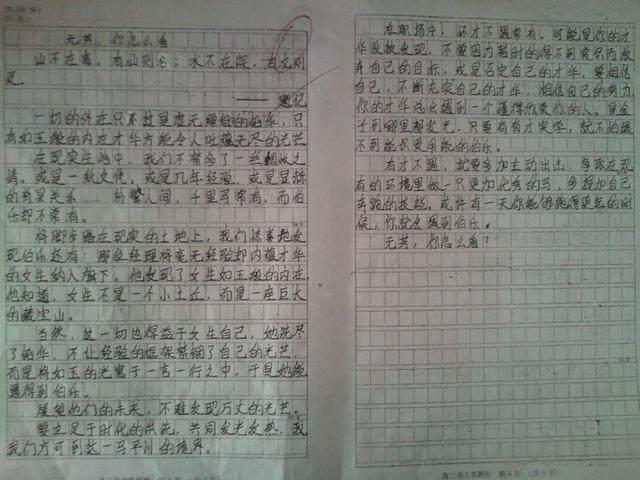 元芳，你怎么看
山不在高，有仙则名；水不在深，有龙则
灵。
——题记
一切的外在只不过是虚无缥缈的铅华，只
有如玉般的内在才华方能令人吐蕴无尽的光芒
在现实生活中，我们不常会了一丝
情。或是一纸文凭，或是几年经验，或是显赫
的背景关系……纷繁人间，千里马常有，而伯
乐却不常有。
将脚步踏在现实的土地上，我们惊喜地发
现伯乐还有：那位经理将毫无经验却内蕴才华
的女生纳入旗下。他发现了女生如玉般的内在，
他知道，女生不是一个小土丘，而是一座巨大
的藏宝山。
当然，这一切也得益于女生自己，她洗尽
了铅华，不让经验的框架禁锢了自己的光芒，
而是将如玉的光寓于一言一行之中，于是她能
遇得到伯乐。
展望他们的未来，不难发现万丈的光芒。
要立足于时代的洪流，共同发光发热，我
我们方可到达一马平川的境界。
在职场中，怀才不遇常有，可能是你的才
华没被发现，不要因为暂时的得不到赏识而放
弃自己的目标，或是否定自己的才华，要相信
自己，不断充实自己的才华，相信自己的努力，
你的才华总会遇到一个懂得欣赏你的人。是金
子到哪里都发光，只要有才实学，就不怕遇
不到能识能用的伯乐。
有才不遇，就要多加主动出击，争取在现
有的环境里做一只更加优秀的马，多增加自己
奔跑的技能。或许有一天你能够跑得更远的时
候，你就会遇到伯乐。
元芳，你怎么看？